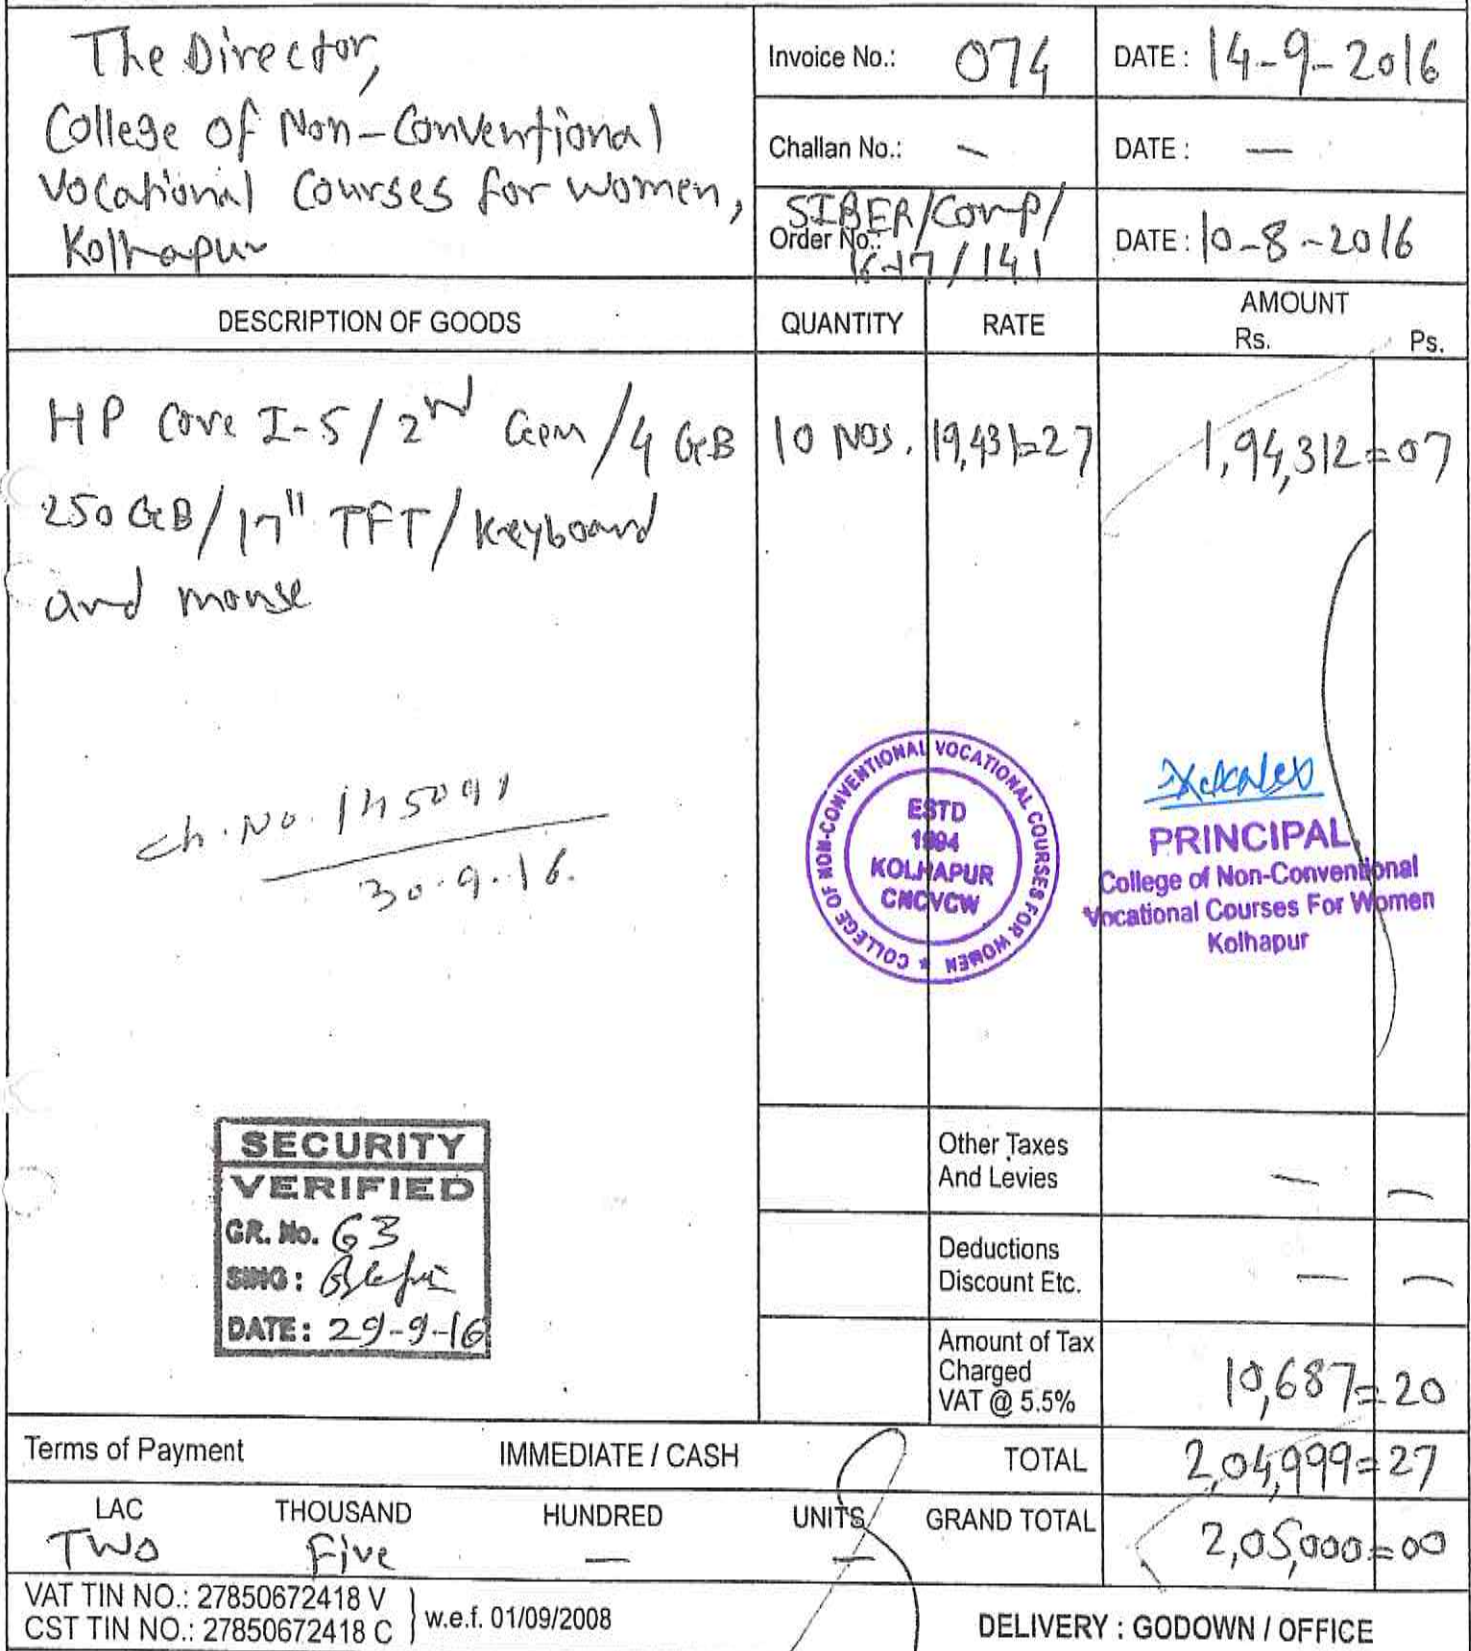 The Director,
College of Non-Conventional
Vocational Courses for women,
Kolhapur
Invoice No.: 074 DATE : 14-9-2016
Challan No.: — DATE : —
Order No.: SIBER/Comp/
16-17/141 DATE : 10-8-2016
DESCRIPTION OF GOODS QUANTITY RATE AMOUNT
Rs. Ps.
HP Core I-5/2nd Gen/4 GB 10 Nos. 19,431=27 1,94,312=07
250 GB/17" TFT/Keyboard
and mouse
ch. No. 145091
30.9.16.
COLLEGE OF NON-CONVENTIONAL VOCATIONAL COURSES FOR WOMEN ★
ESTD
1994
KOLHAPUR
CNCVCW
PRINCIPAL
College of Non-Conventional
Vocational Courses For Women
Kolhapur
SECURITY
VERIFIED
GR. No. 63
SING :
DATE : 29-9-16
Other Taxes
And Levies — —
Deductions
Discount Etc. — —
Amount of Tax
Charged
VAT @ 5.5% 10,687=20
Terms of Payment IMMEDIATE / CASH TOTAL 2,04,999=27
LAC THOUSAND HUNDRED UNITS GRAND TOTAL 2,05,000=00
Two Five — —
VAT TIN NO.: 27850672418 V
CST TIN NO.: 27850672418 C
w.e.f. 01/09/2008
DELIVERY : GODOWN / OFFICE